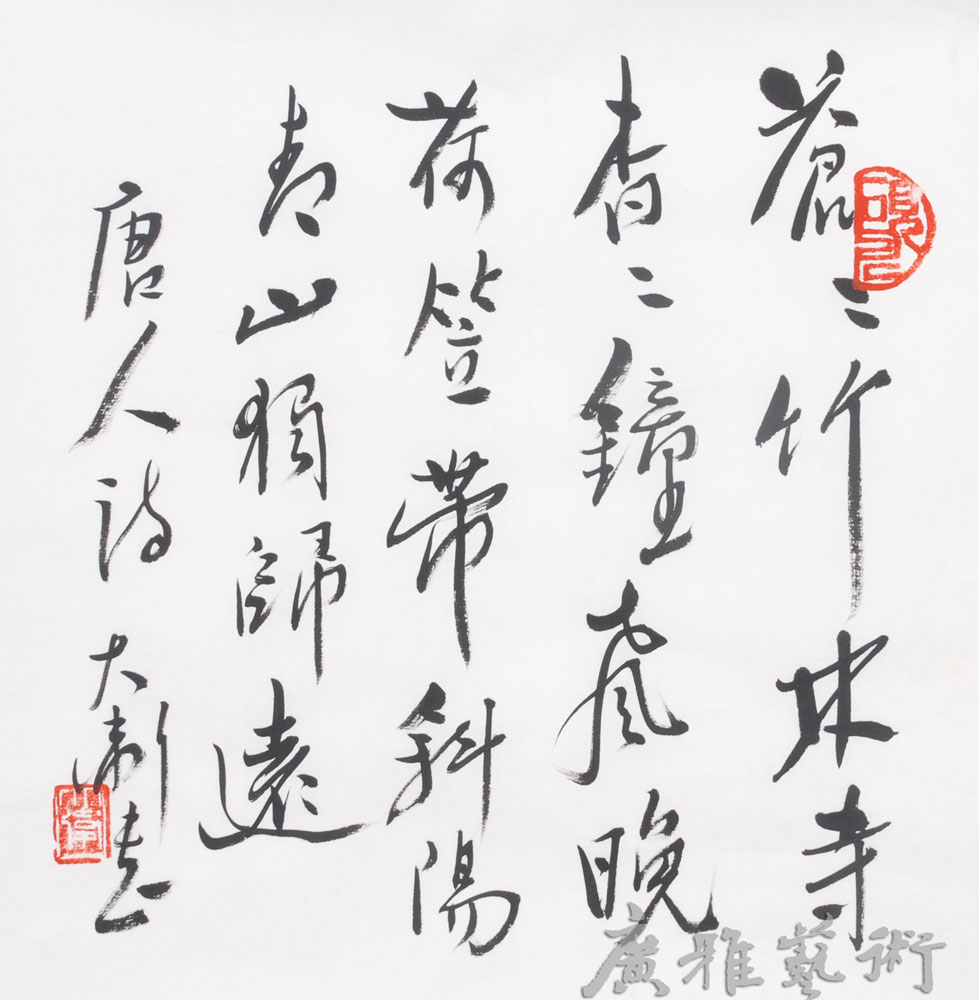 蒼〻竹林寺
杳〻鐘聲晚
荷笠帶斜陽
青山獨歸遠
唐人詩 大
廣雅藝術